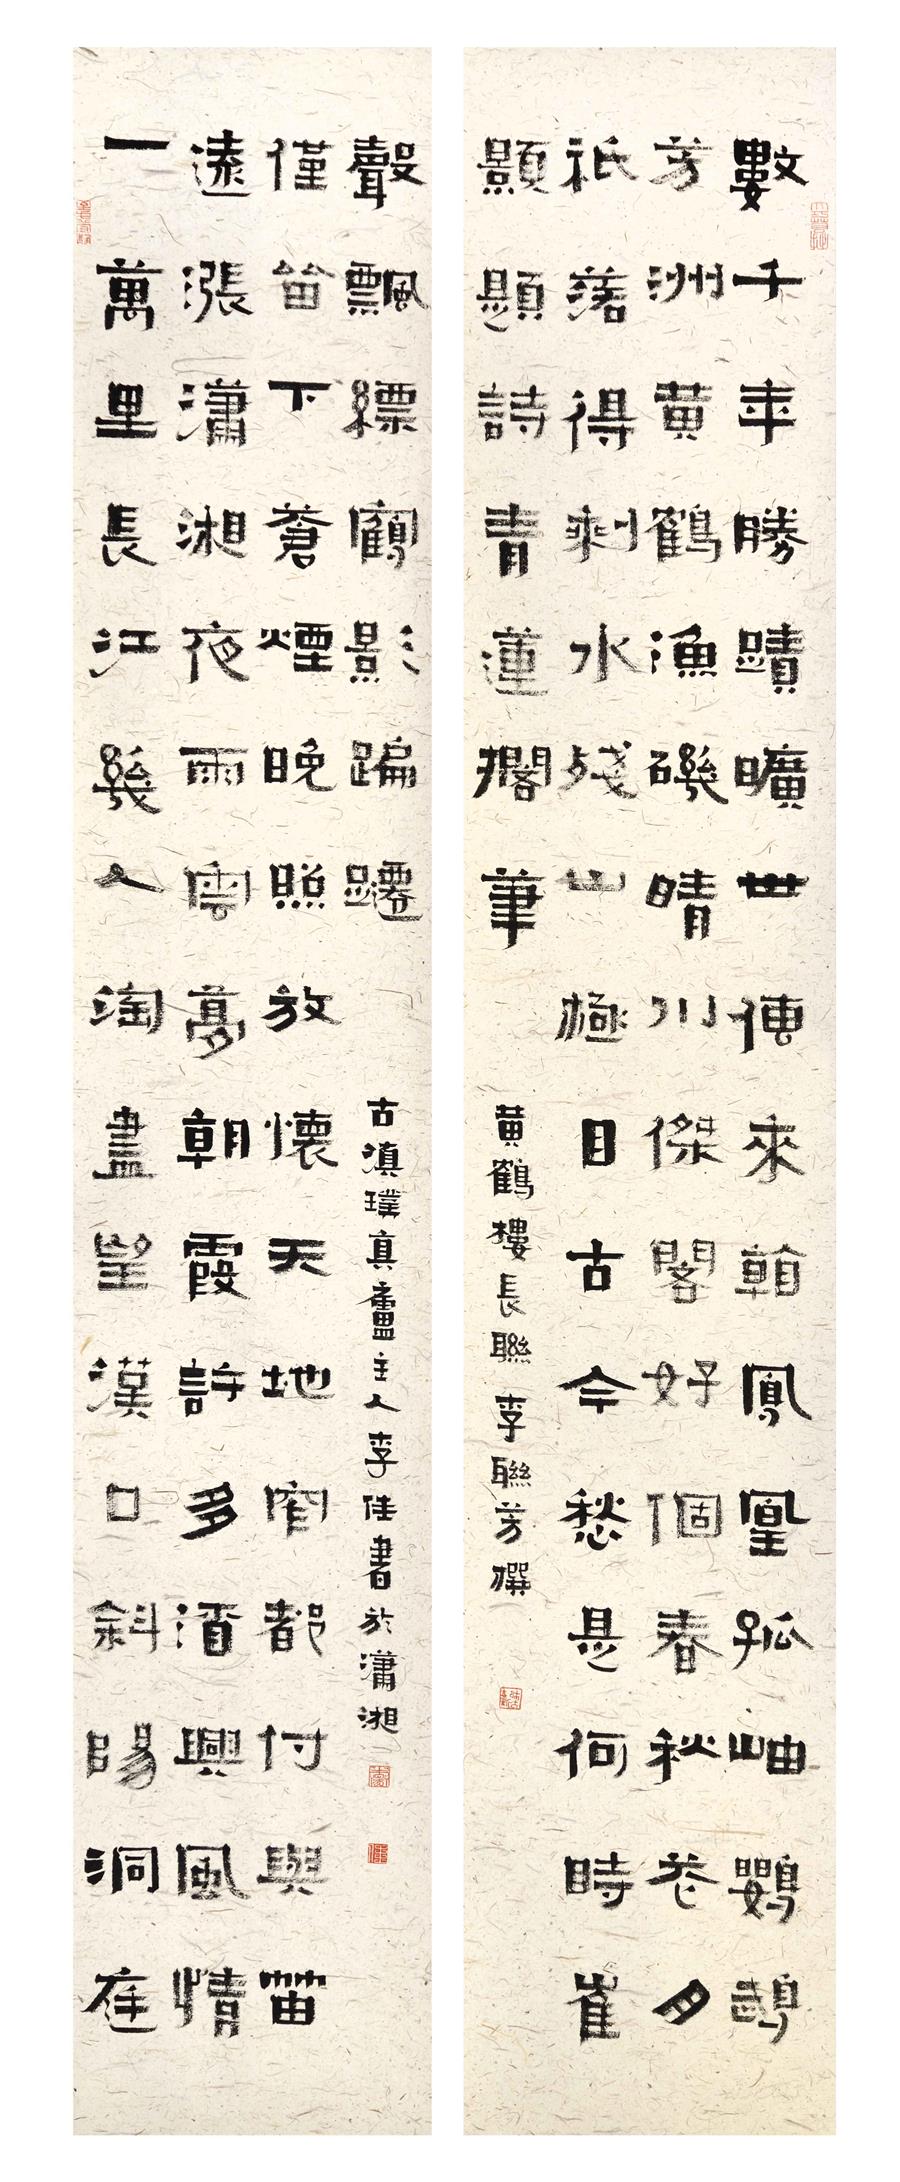 數千年勝蹟曠世傳來看鳳凰孤岫鸚鵡
芳洲黃鶴漁磯晴川傑閣好個春秋花月
祇落得剩水殘山極目古今愁是何時崔
顥題詩青蓮擱筆
黃鶴樓長聯 李聯芳撰
一萬里長江幾人淘盡望漢口斜陽洞庭
遠漲瀟湘夜雨雲夢朝霞許多酒興風情
僅留下蒼煙晚照放懷天地窄都付與笛
聲飄縹鶴影蹁躚
古滇璞真廬主人李佳書於瀟湘